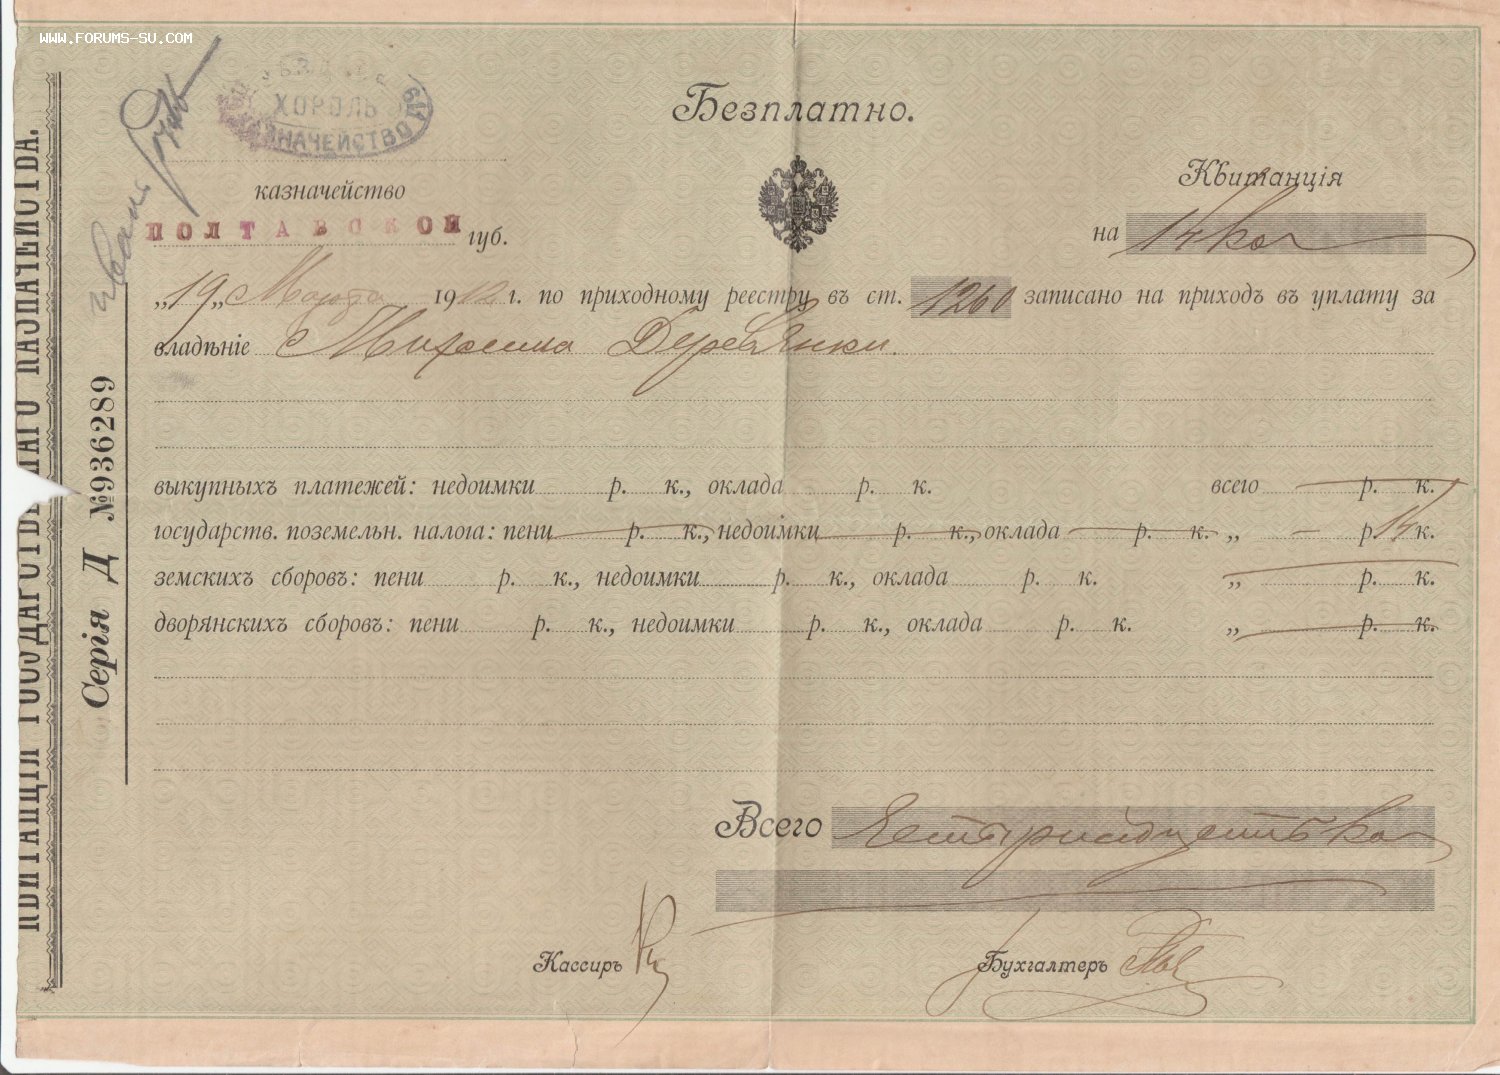 WWW.FORUMS-SU.COM
ХОРОЛЬ
КАЗНАЧЕЙСТВО
Безплатно.
казначейство
ПОЛТАВСКОЙ губ.
Квитанція
на 14 коп
„19„ Марта 1912 г. по приходному реестру въ ст. 1260 записано на приходъ въ уплату за
владѣніе Михаила Деревянки.
выкупныхъ платежей: недоимки р. к., оклада р. к. всего — р. к.
государств. поземельн. налога: пени — р. к., недоимки — р. к., оклада — р. к. „ — р. 14 к.
земскихъ сборовъ: пени р. к., недоимки р. к., оклада р. к. „ — р. к.
дворянскихъ сборовъ: пени р. к., недоимки р. к., оклада р. к. „ — р. к.
Всего Четырнадцать коп
Кассиръ
Бухгалтеръ
Серія Д №936289
КВИТАНЦІЯ ГОСУДАРСТВЕННАГО КАЗНАЧЕЙСТВА.